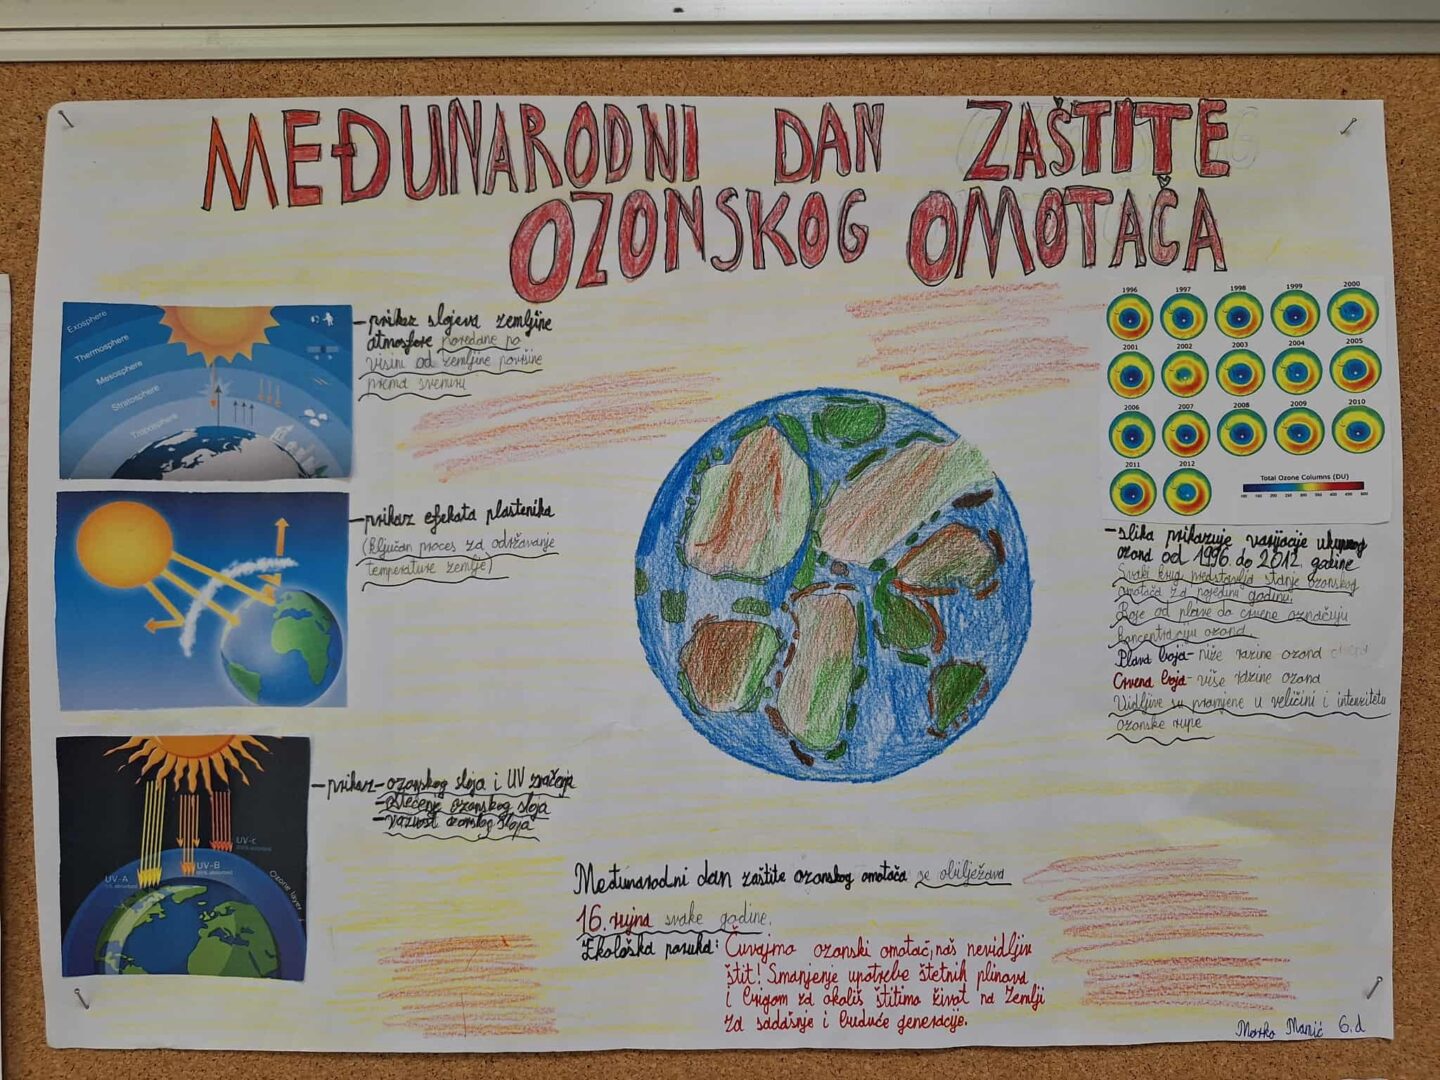 MEĐUNARODNI DAN ZAŠTITE
OZONSKOG OMOTAČA
Exosphere
Thermosphere
Mesosphere
Stratosphere
Troposphere
- prikaz slojeva zemljine
atmosfere poredane po
visini od zemljine površine
prema svemiru
- prikaz efekata plastenika
(ključan proces za održavanje
temperature zemlje)
UV-A
UV-B
UV-C
Ozone layer
- prikaz - ozonskog sloja i UV zračenja
- oštećenje ozonskog sloja
- važnost ozonskog sloja
1996 1997 1998 1999 2000
2001 2002 2003 2004 2005
2006 2007 2008 2009 2010
2011 2012
Total Ozone Columns (DU)
- slika prikazuje varijacije ukupnog
ozona od 1996. do 2012. godine
Svaki krug predstavlja stanje ozonskog
omotača za pojedinu godinu.
Boje od plave do crvene označuju
koncentraciju ozona.
Plava boja - niže razine ozona
Crvena boja - više razine ozona
Vidljive su promjene u veličini i intenzitetu
ozonske rupe
Međunarodni dan zaštite ozonskog omotača se obilježava
16. rujna svake godine.
Ekološka poruka: Čuvajmo ozonski omotač, naš nevidljiv
štit! Smanjenje upotrebe štetnih plinova
i brigom za okoliš štitimo život na Zemlji
za sadašnje i buduće generacije.
Marko Manić 6.d